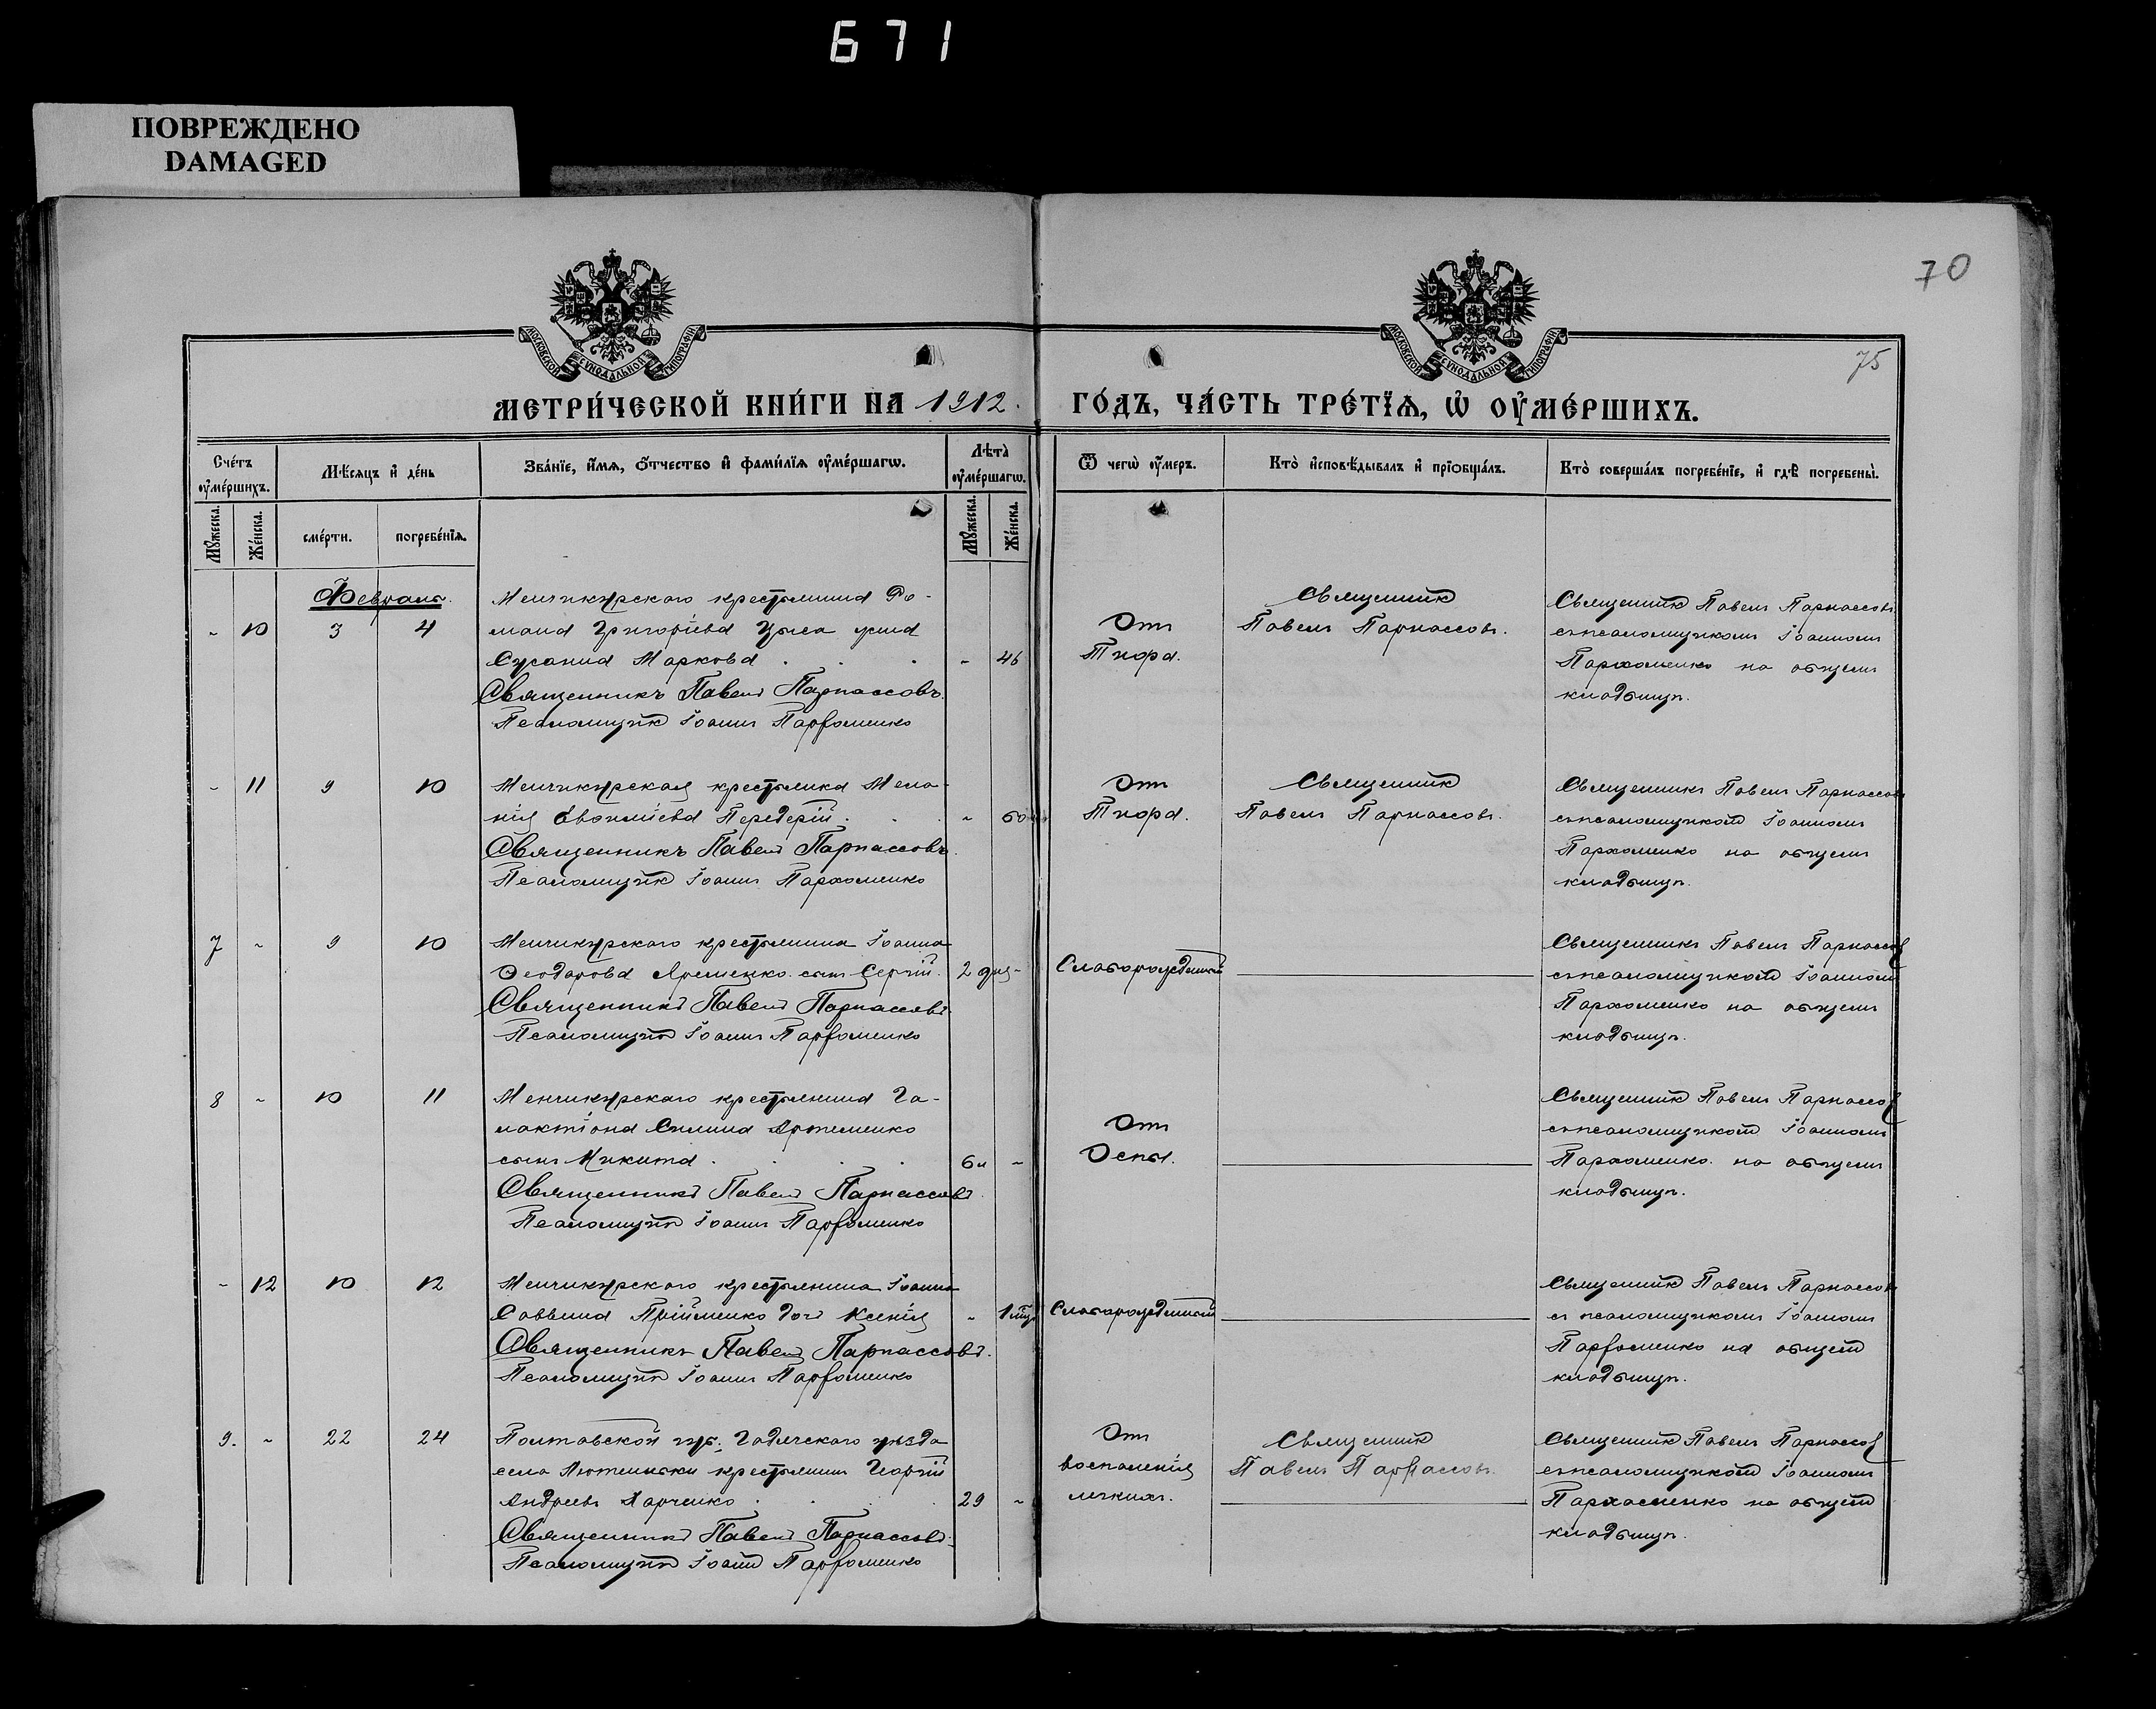 671
ПОВРЕЖДЕНО
DAMAGED
70
75
МОСКОВСКОЙ СѴНОДАЛЬНОЙ ТИПОГРАФІИ
МОСКОВСКОЙ СѴНОДАЛЬНОЙ ТИПОГРАФІИ
МЕТРИ́ЧЕСКОЙ КНИ́ГИ НА 1912.
ГО́ДЪ, ЧА́СТЬ ТРЕ́ТЇѦ, Ѡ҆ ОУ҆МЕ́РШИХЪ.
Сче́тъ оу҆ме́ршихъ.
Мѣ́сяцъ и҆ де́нь
Зва́нїе, и҆́мѧ, о҆́тчество и҆ фами́лїѧ оу҆ме́ршагѡ.
Лѣта̀ оу҆ме́ршагѡ.
Ѿ чегѡ̀ оу҆́меръ.
Кто̀ и҆сповѣ́дывалъ и҆ прїобща́лъ.
Кто̀ соверша́лъ погребе́нїе, и҆ гдѣ̀ погребены̀.
Мꙋ́жеска.
Же́нска.
сме́рти.
погребе́нїѧ.
Мꙋ́жеска.
Же́нска.
Февраль.
- 10 3 4
Менчикурскаго крестьянина Ро-
мана Григоріева Цыса жена
Сусанна Маркова - 46
Священникъ Павелъ Парнассовъ.
Псаломщикъ Іоаннъ Пархоменко
Отъ
Тифа.
Священникъ
Павелъ Парнассовъ.
Священникъ Павелъ Парнассовъ
съ псаломщикомъ Іоанномъ
Пархоменко на общемъ
кладбищѣ.
- 11 9 10
Менчикурская крестьянка Мела-
нія Евфиміева Передерій - 60
Священникъ Павелъ Парнассовъ.
Псаломщикъ Іоаннъ Пархоменко
Отъ
Тифа.
Священникъ
Павелъ Парнассовъ.
Священникъ Павелъ Парнассовъ
съ псаломщикомъ Іоанномъ
Пархоменко на общемъ
кладбищѣ.
7 - 9 10
Менчикурскаго крестьянина Іоанна
Ѳеодорова Яременко сынъ Сергій. 2 дня -
Священникъ Павелъ Парнассовъ.
Псаломщикъ Іоаннъ Пархоменко
Слаборожденный
Священникъ Павелъ Парнассов
съ псаломщикомъ Іоанномъ
Пархоменко на общемъ
кладбищѣ.
8 - 10 11
Менчикурскаго крестьянина Га-
лактіона Силина Артеменко
сынъ Никита 6 -
Священникъ Павелъ Парнассовъ.
Псаломщикъ Іоаннъ Пархоменко
Отъ
Оспы.
Священникъ Павелъ Парнассов
съ псаломщикомъ Іоанномъ
Пархоменко на общемъ
кладбищѣ.
- 12 10 12
Менчикурскаго крестьянина Іоанна
Саввина Прійменко дочь Ксенія - 1
Священникъ Павелъ Парнассовъ.
Псаломщикъ Іоаннъ Пархоменко
Слаборожденный
Священникъ Павелъ Парнассовъ
съ псаломщикомъ Іоанномъ
Пархоменко на общемъ
кладбищѣ.
9. - 22 24
Полтавской губ. Гадячскаго уѣзда
села Лютеньки крестьянинъ Георгій
Андреевъ Харченко 29 -
Священникъ Павелъ Парнассовъ.
Псаломщикъ Іоаннъ Пархоменко
Отъ
воспаленія
легкихъ.
Священникъ
Павелъ Парнассовъ.
Священникъ Павелъ Парнассов
съ псаломщикомъ Іоанномъ
Пархоменко на общемъ
кладбищѣ.